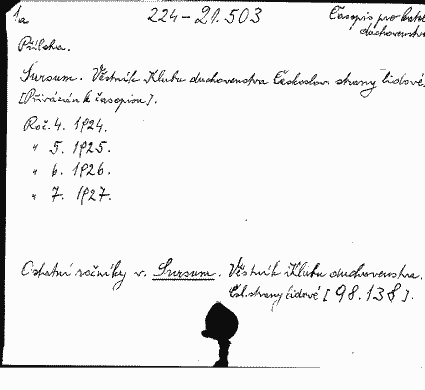 1a 224-21.503 Časopis pro katol
duchovenstvo
Příloha.
Sursum. Věstník Klubu duchovenstva Českoslov. strany lidové.
[Přivázán k časopisu].
Roč. 4. 1924.
" 5. 1925.
" 6. 1926.
" 7. 1927.
Ostatní ročníky v. Sursum. Věstník Klubu duchovenstva.
Čsl. strany lidové [98.138].